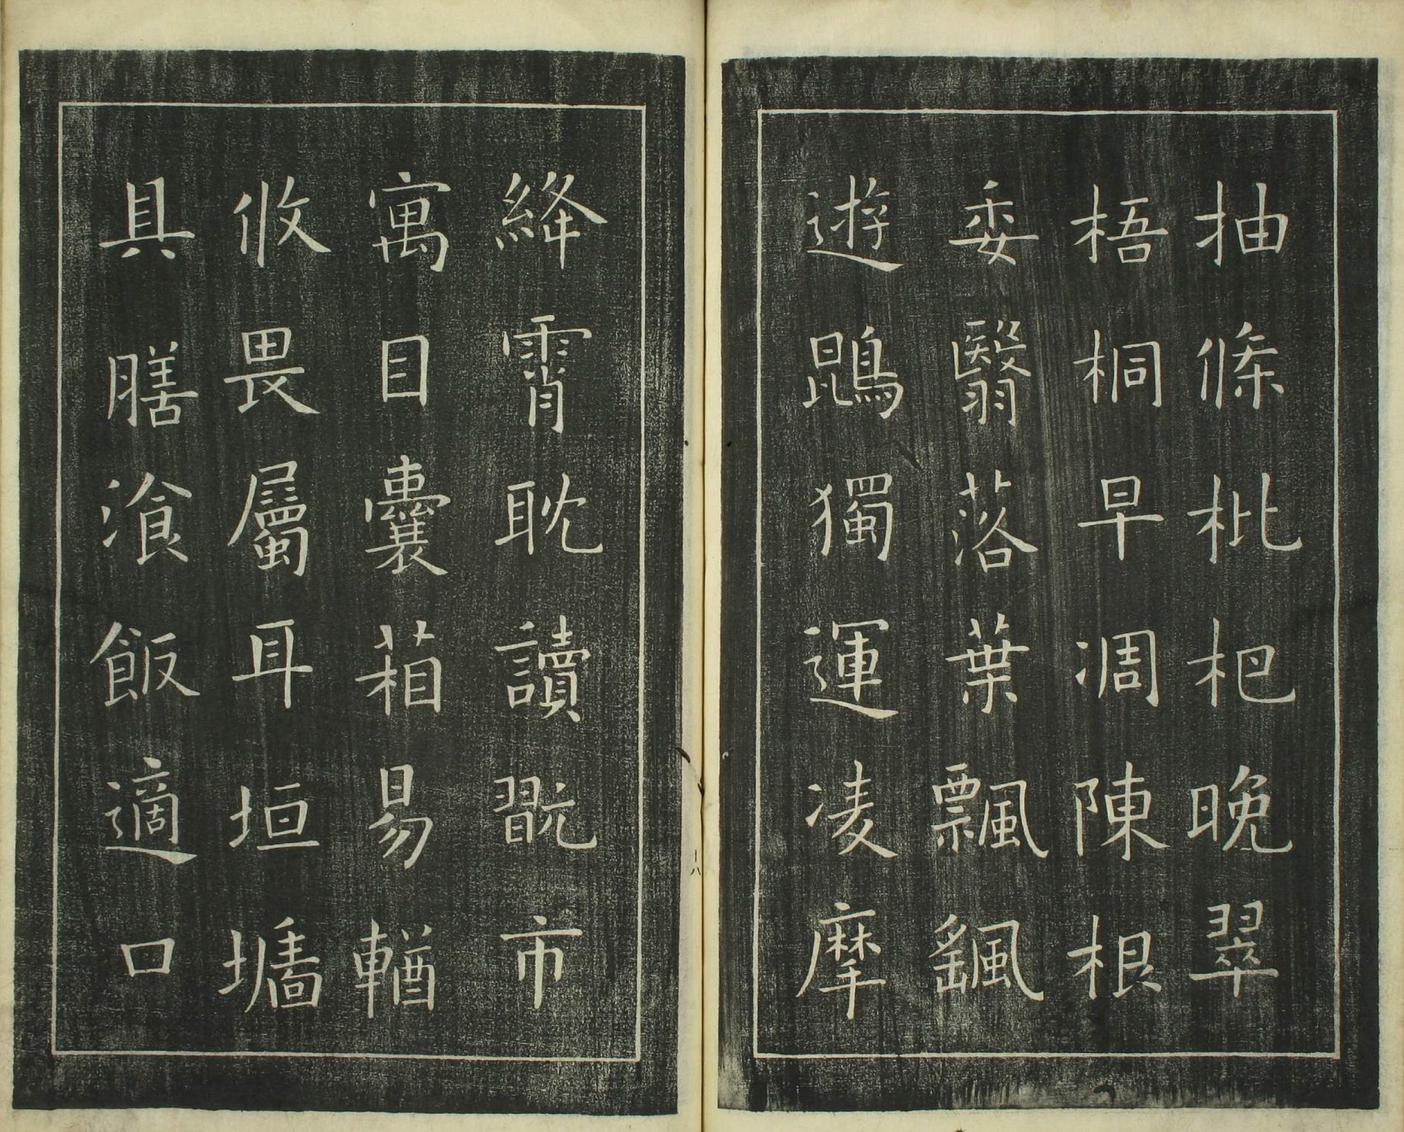 抽條枇杷晚翠
梧桐早凋陳根
委翳落葉飄颻
遊鵾獨運凌摩
絳霄耽讀翫市
寓目囊葙易輶
攸畏屬耳垣墻
具膳飡飯適口